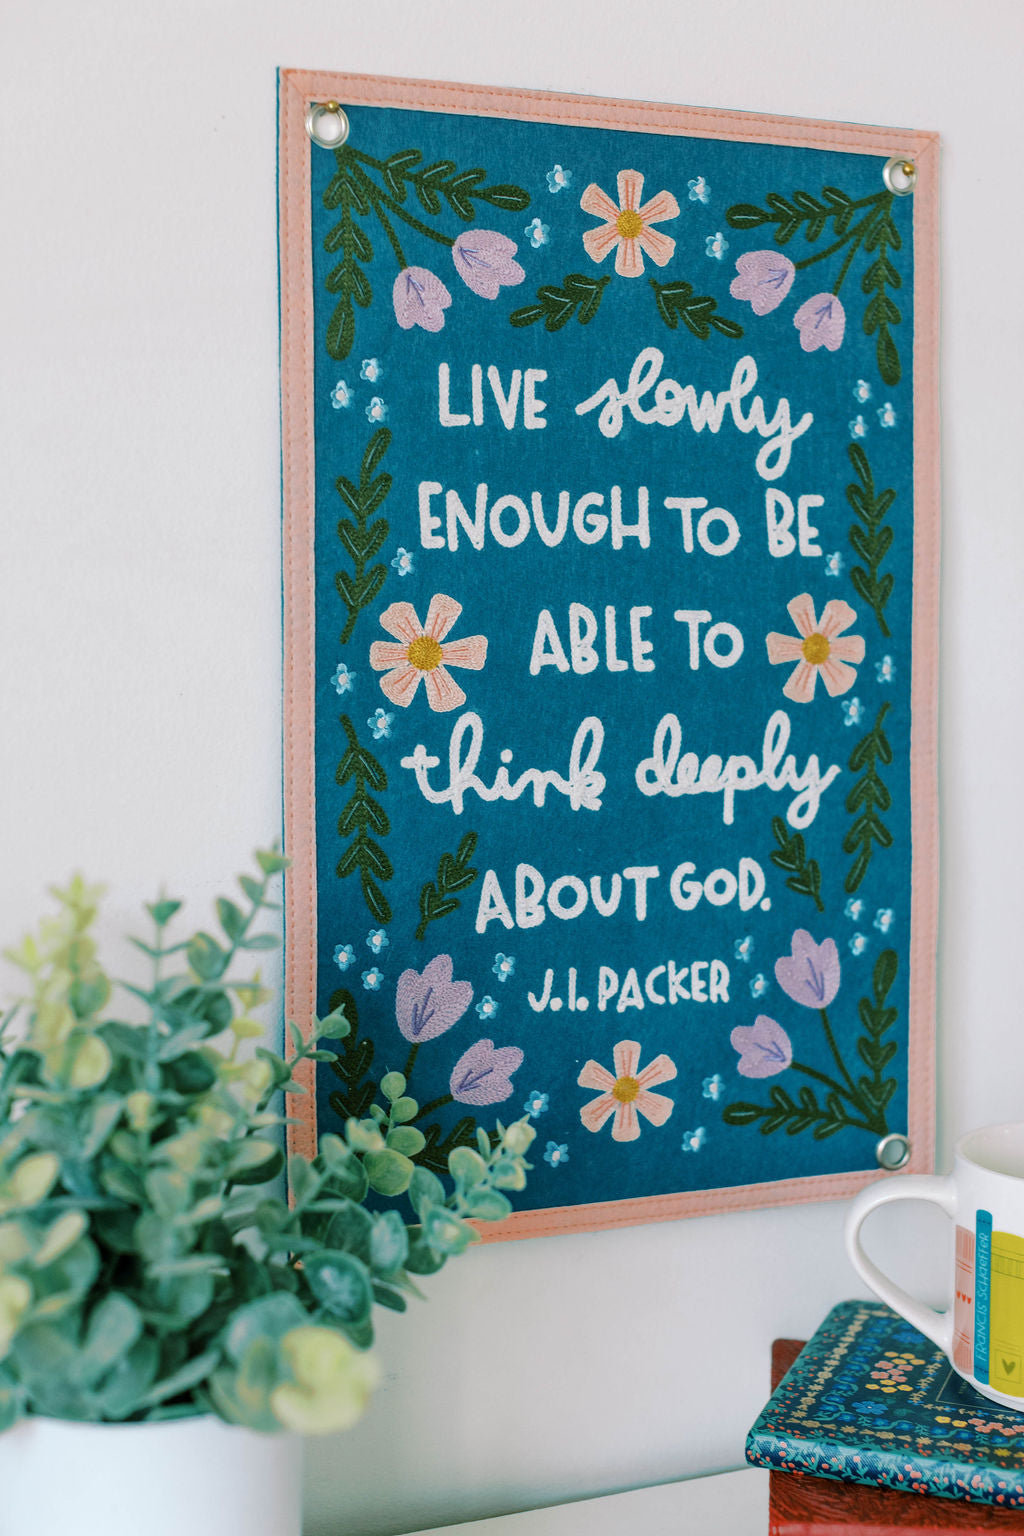 LIVE slowly
ENOUGH TO BE
ABLE TO
think deeply
ABOUT GOD.
J.I. PACKER
FRANCIS SCHAEFFER